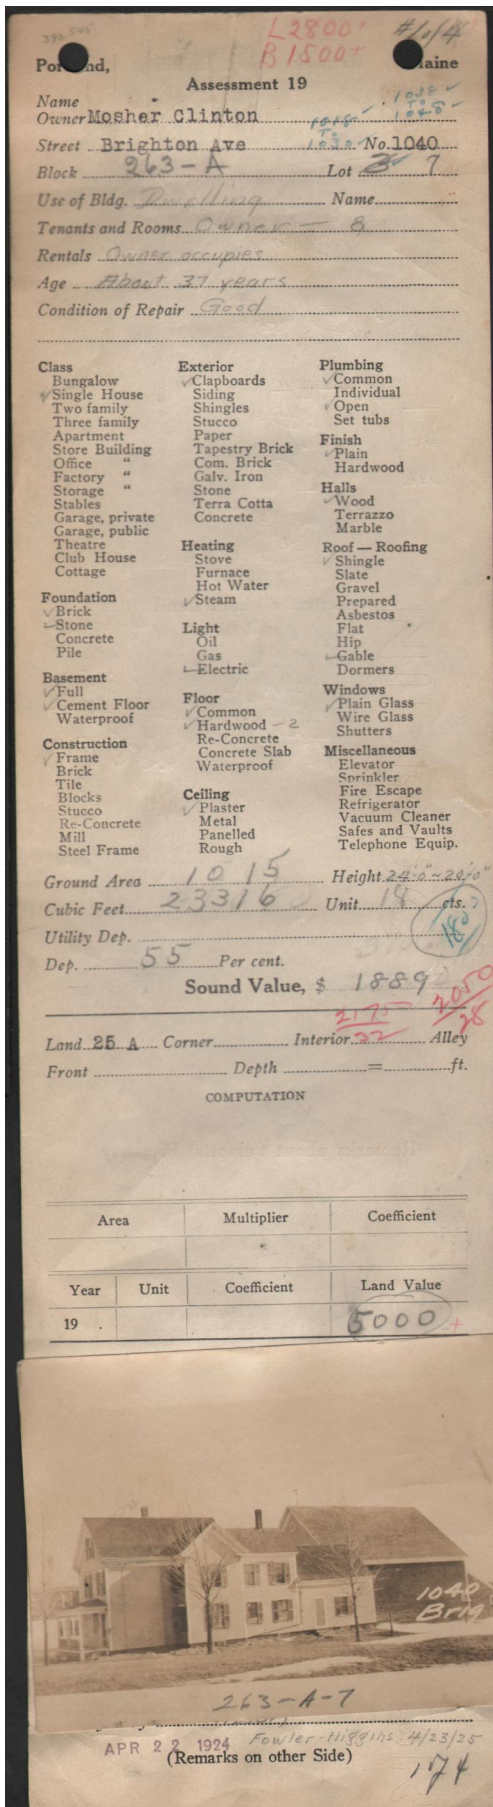 L 2800 #1014
B 1500+
Portland, Maine
Assessment 19
Name
Owner Mosher Clinton
1038
To
1048
1018
To
1030
Street Brighton Ave No. 1040
Block 263-A Lot 3 7
Use of Bldg. Dwelling Name
Tenants and Rooms Owner — 8
Rentals Owner occupies
Age About 37 years
Condition of Repair Good
Class
Bungalow
✓Single House
Two family
Three family
Apartment
Store Building
Office "
Factory "
Storage "
Stables
Garage, private
Garage, public
Theatre
Club House
Cottage
Foundation
✓Brick
✓Stone
Concrete
Pile
Basement
✓Full
✓Cement Floor
Waterproof
Construction
✓Frame
Brick
Tile
Blocks
Stucco
Re-Concrete
Mill
Steel Frame
Exterior
✓Clapboards
Siding
Shingles
Stucco
Paper
Tapestry Brick
Com. Brick
Galv. Iron
Stone
Terra Cotta
Concrete
Heating
Stove
Furnace
Hot Water
✓Steam
Light
Oil
Gas
✓Electric
Floor
✓Common
✓Hardwood - 2
Re-Concrete
Concrete Slab
Waterproof
Ceiling
✓Plaster
Metal
Panelled
Rough
Plumbing
✓Common
Individual
✓Open
Set tubs
Finish
✓Plain
Hardwood
Halls
✓Wood
Terrazzo
Marble
Roof — Roofing
✓Shingle
Slate
Gravel
Prepared
Asbestos
Flat
Hip
✓Gable
Dormers
Windows
✓Plain Glass
Wire Glass
Shutters
Miscellaneous
Elevator
Sprinkler
Fire Escape
Refrigerator
Vacuum Cleaner
Safes and Vaults
Telephone Equip.
Ground Area 1015 Height 24'-0" ~ 20'-0"
Cubic Feet 23316 Unit 18 cts.
1800
Utility Dep.
Dep. 55 Per cent.
Sound Value, $ 1889
2175 2050
22 28
Land 25 A Corner Interior Alley
Front Depth = ft.
COMPUTATION
Area Multiplier Coefficient
Year Unit Coefficient Land Value
19 . 5000 +
1040
Brig
263-A-7
APR 22 1924 Fowler-Higgins 4/23/25
(Remarks on other Side)
174